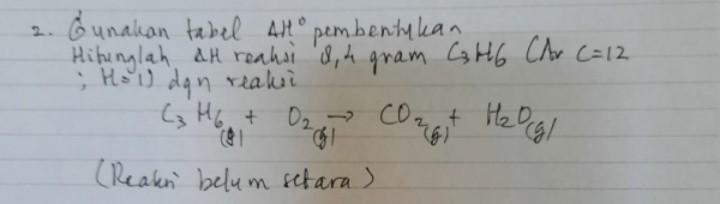 2. Gunakan tabel ΔH° pembentukan
Hitunglah ΔH reaksi 8,4 gram C3H6 (Ar C=12
; H=1) dgn reaksi
C3H6(g) + O2(g) → CO2(g) + H2O(g)
(Reaksi belum setara)